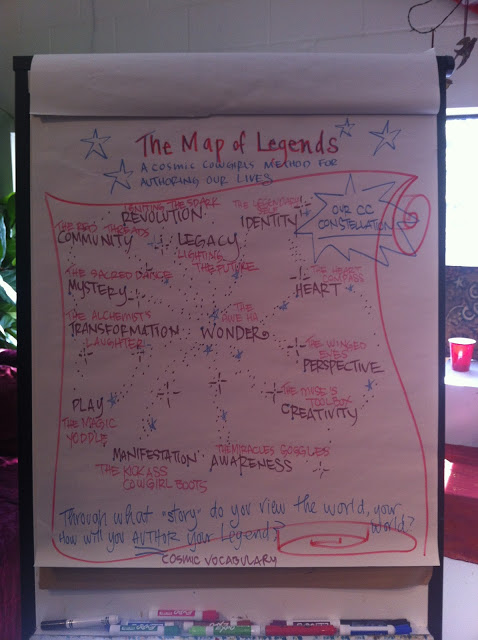 The Map of Legends
A COSMIC COWGIRLS METHOD FOR
AUTHORING OUR LIVES
IGNITING THE SPARK
REVOLUTION
THE LEGENDARY
SELF
IDENTITY
OUR CC
CONSTELLATION
THE RED THREADS
COMMUNITY
LEGACY
LIGHTING
THE FUTURE
THE SACRED DANCE
MYSTERY
THE HEART
COMPASS
HEART
THE ALCHEMIST'S
TRANSFORMATION
LAUGHTER
THE
AWE HA
WONDER
THE WINGED
ONES
PERSPECTIVE
PLAY
THE MAGIC
YODDLE
THE MUSE'S
TOOLBOX
CREATIVITY
MANIFESTATION
THE KICKASS
COWGIRL BOOTS
THE MIRACLES GOGGLES
AWARENESS
Through what "story" do you view the world, your
world?
How will you AUTHOR your Legend?
COSMIC VOCABULARY